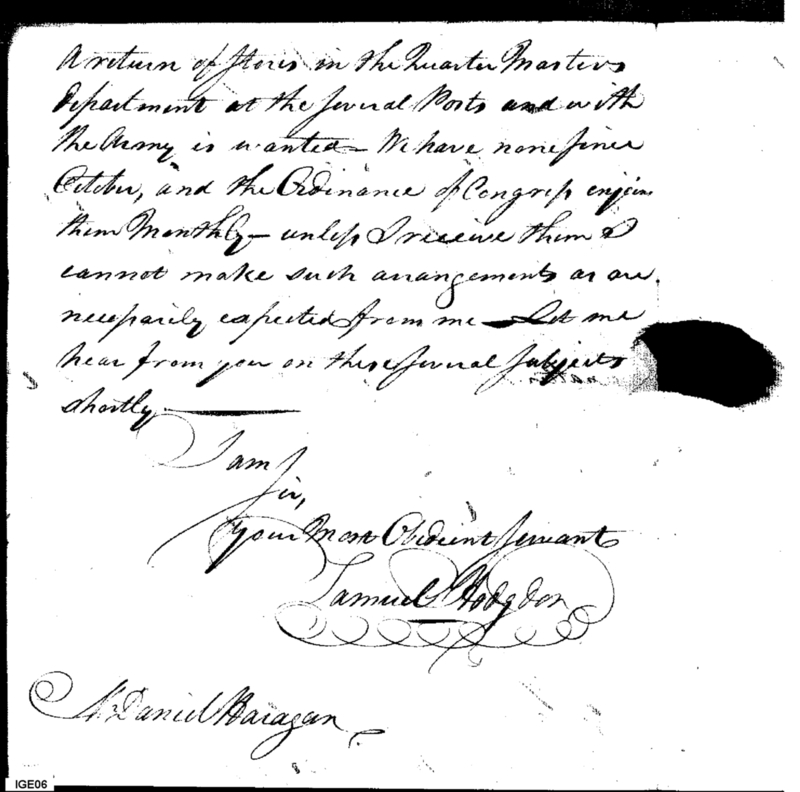 A return of Stores in the Quarter Masters
department at the several Posts and with
the Army is wanted — We have none since
October, and the Ordinance of Congress enjoins
them Monthly — unless I receive them I
cannot make such arrangements as are
necessarily expected from me — Let me
hear from you on these several subjects
shortly. —
I am
Sir,
Your Most Obedient Servant
Samuel Hodgdon
Mr Daniel Haragan
IGE06